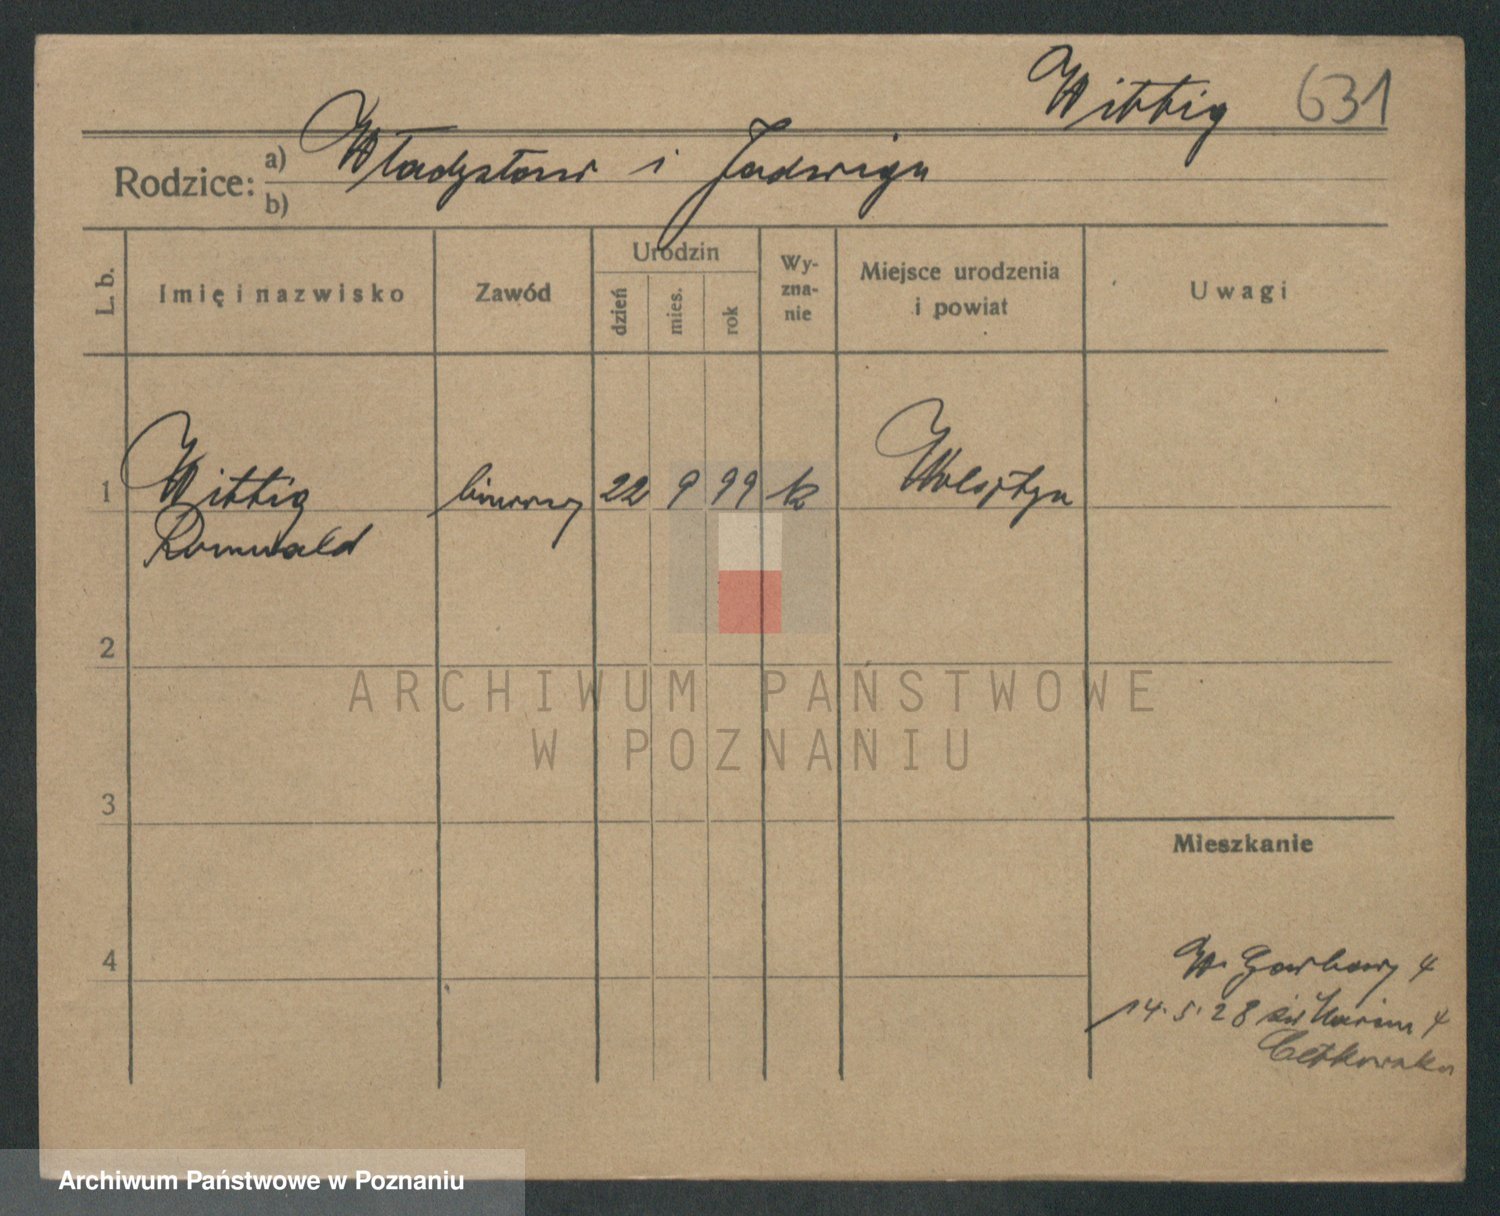 Wittig 631
Rodzice: a) Władysław i Jadwiga
b)
L. b. Imię i nazwisko Zawód Urodzin dzień mies. rok Wy-zna-nie Miejsce urodzenia i powiat Uwagi
1 Wittig biurowy 22 9 99 k Wolsztyn
Romuald
2
3
Mieszkanie
4
W. Garbary 4
14.5.28 św Marcin 4
ARCHIWUM PAŃSTWOWE
W POZNANIU
Archiwum Państwowe w Poznaniu